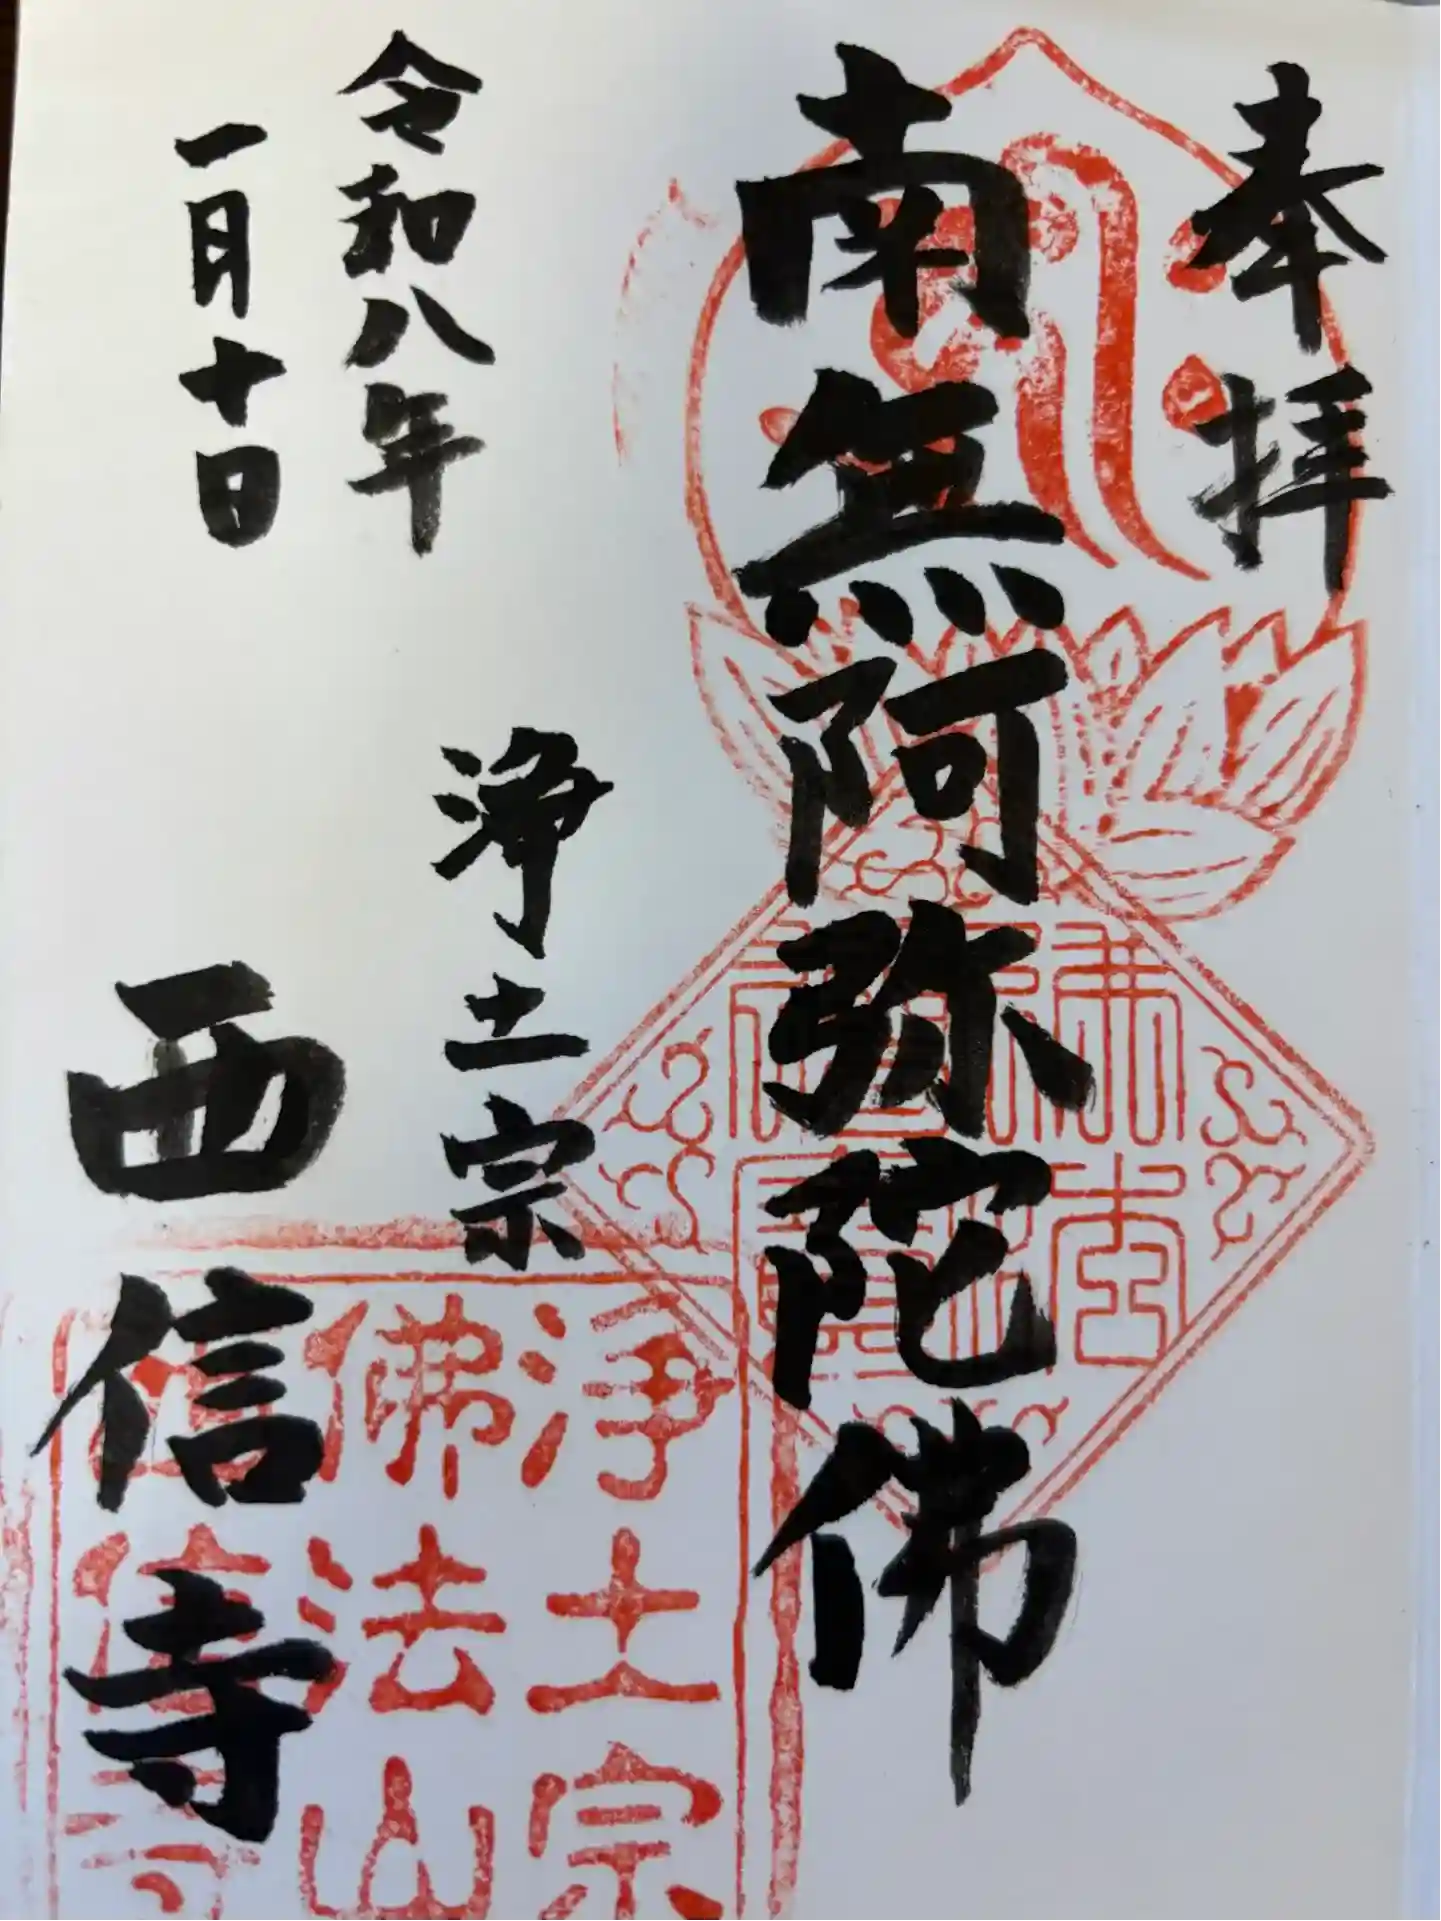 奉拝
南無阿弥陀佛
浄土宗
令和八年
一月十日
西信寺
浄土宗
佛法山
西信寺